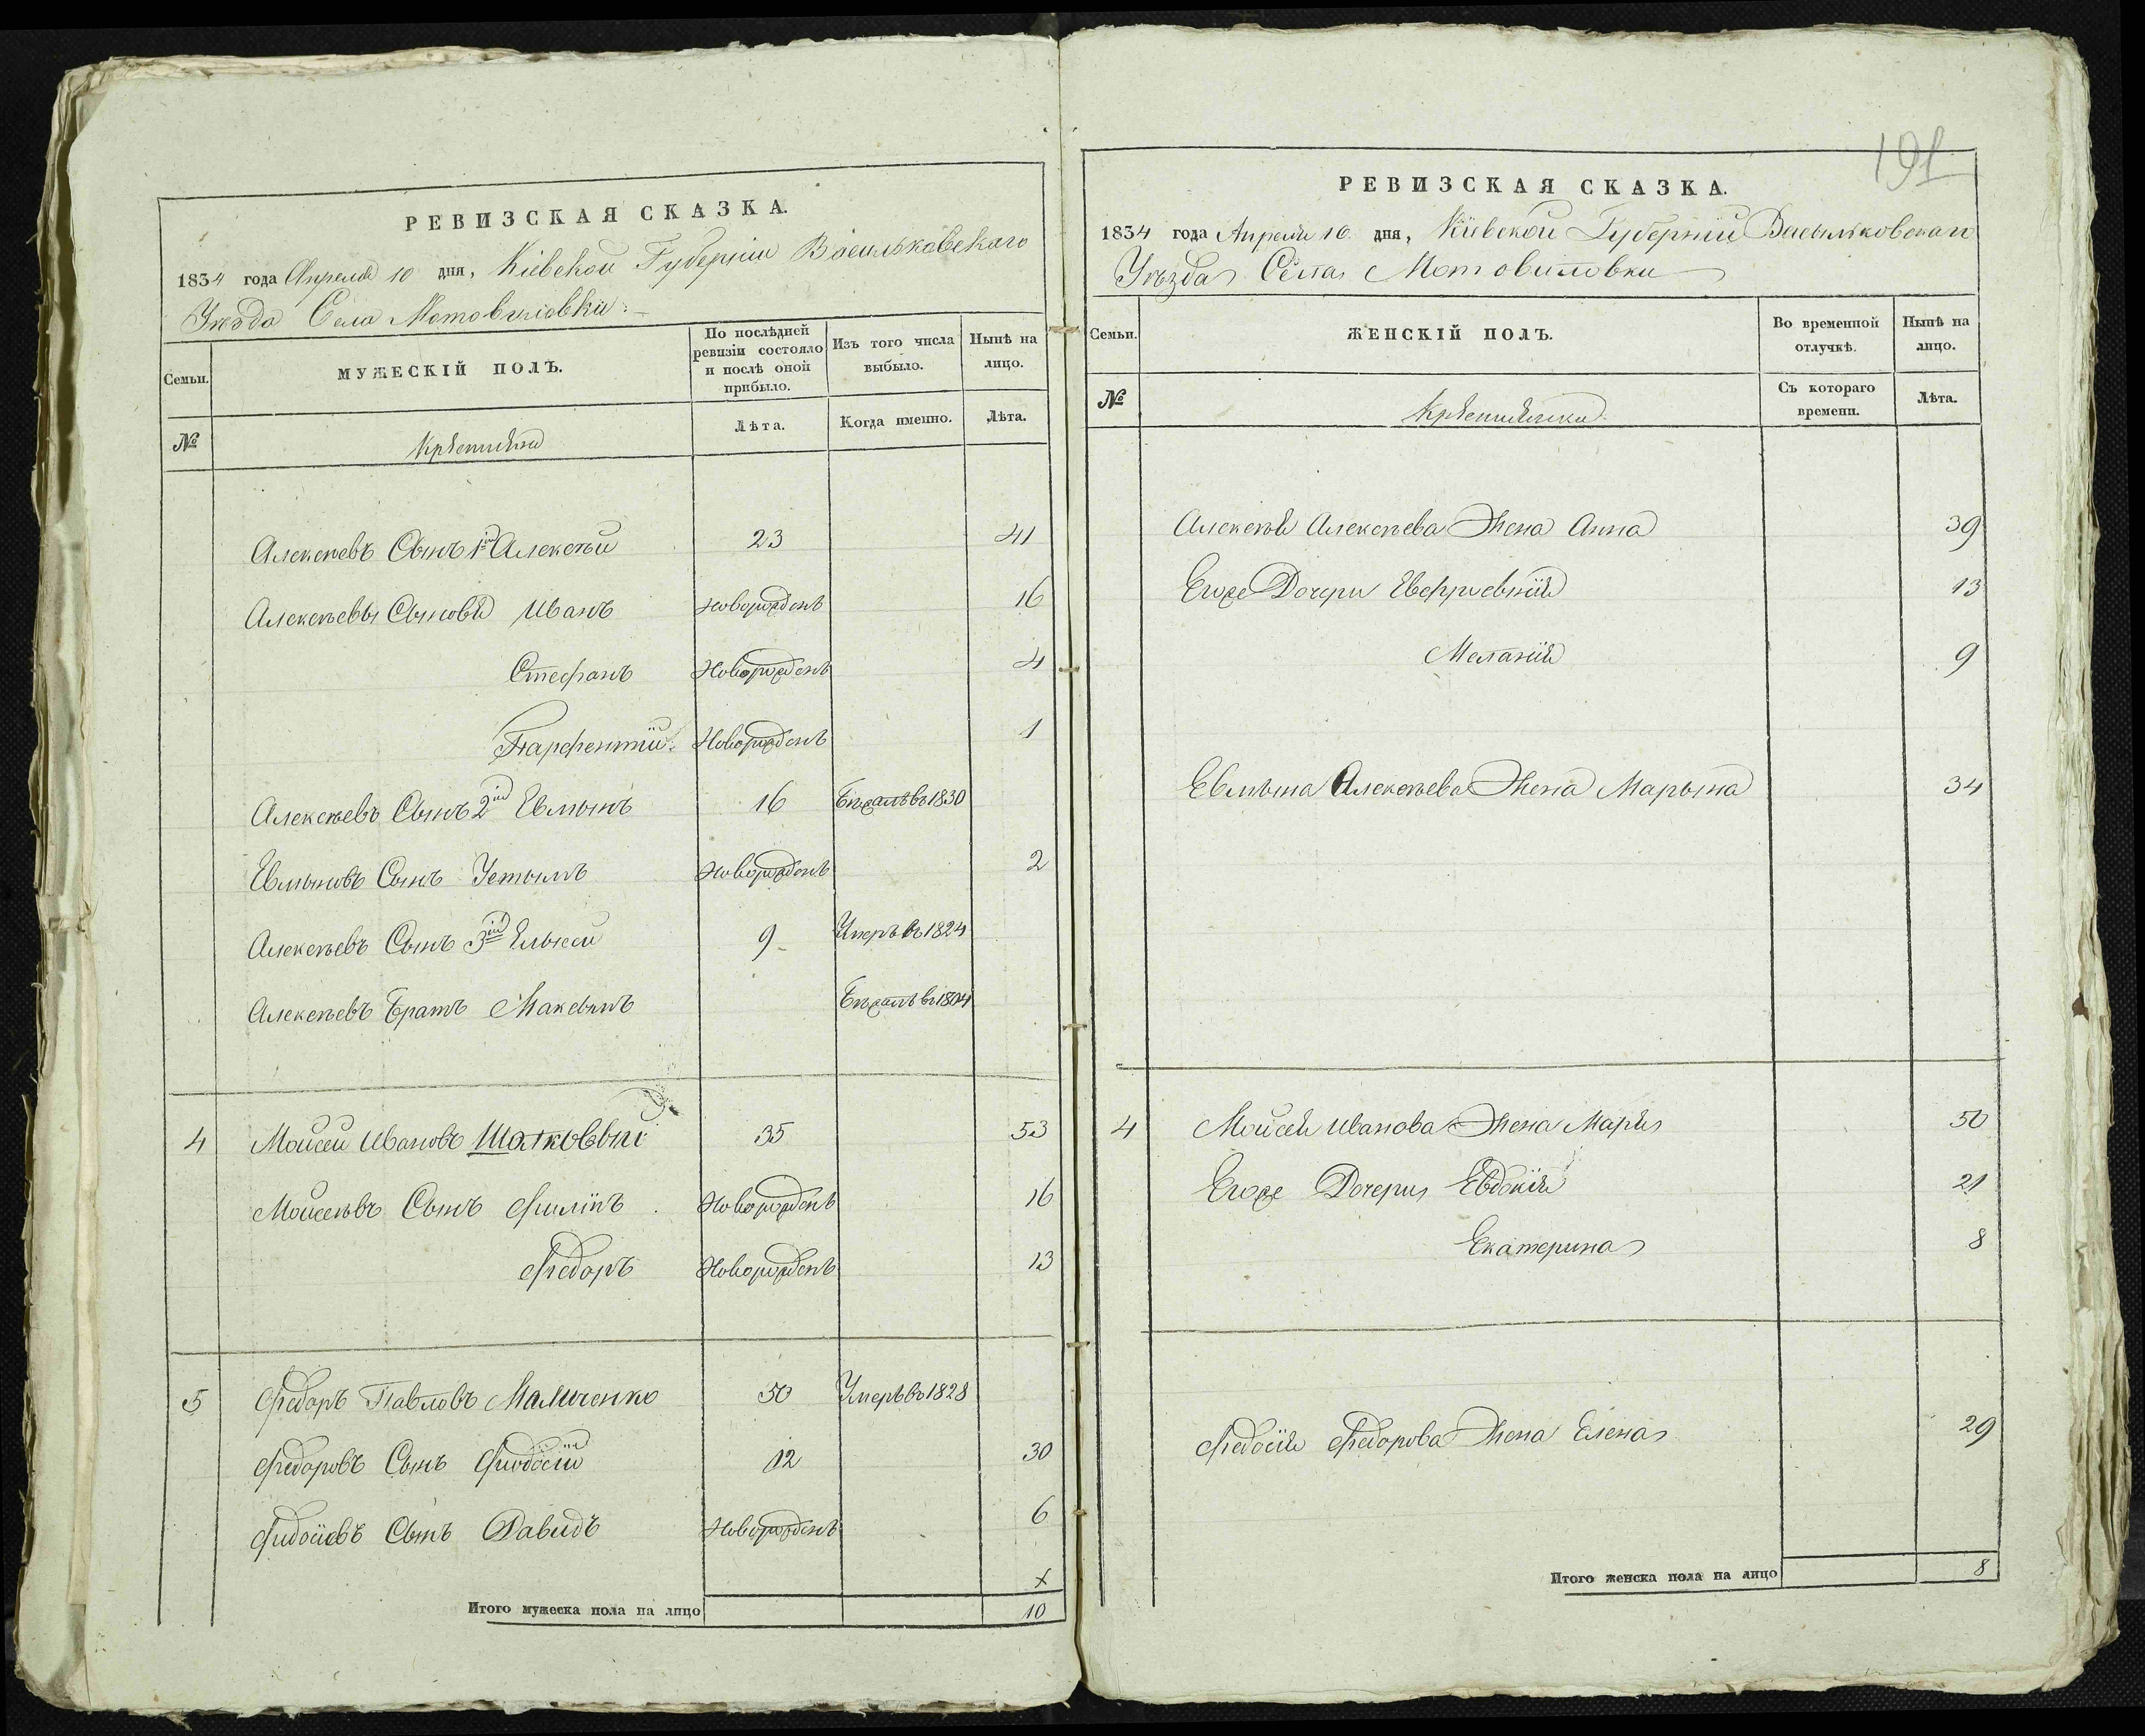 РЕВИЗСКАЯ СКАЗКА.
1834 года Апреля 10 дня, Кіевской Губерніи Васильковскаго
Уѣзда Села Мотовиловки
Семьи. МУЖЕСКІЙ ПОЛЪ. По послѣдней ревизіи состояло и послѣ оной прибыло. Изъ того числа выбыло. Нынѣ на лицо.
№ Крѣстьянѣ Лѣта. Когда именно. Лѣта.
Алексѣевъ Сынъ 1й Алексѣй 23 41
Алексѣевы Сыновья Иванъ новорожденъ 16
Стефанъ Новорожденъ 4
Парфентій Новорожденъ 1
Алексѣевъ Сынъ 2ій Евлтынъ 16 Бѣжалъ въ 1830
Сынъ Устымъ Новорожденъ 2
Алексѣевъ Сынъ 3ій Елысей 9 Умеръ въ 1824
Алексѣевъ Братъ Максымъ Бѣжалъ въ 1804
4 Мойсей Ивановъ Шолковый 35 53
Мойсеевъ Сынъ Филіпъ Новорожденъ 16
Федоръ Новорожденъ 13
5 Федоръ Павловъ 50 Умеръ въ 1828
Федоровъ Сынъ Фиодосій 12 30
Фидосіевъ Сынъ Давидъ Новорожденъ 6
х
Итого мужеска пола на лицо 10
191
РЕВИЗСКАЯ СКАЗКА.
1834 года Апреля 10 дня, Кіевской Губерніи Васильковскаго
Уѣзда Села Мотовиловки
Семьи. ЖЕНСКІЙ ПОЛЪ. Во временной отлучкѣ. Нынѣ на лицо.
№ Крѣстьянки Съ котораго времени. Лѣта.
Алексѣя Алексѣева Жена Анна 39
Егоже Дочери 13
Меланія 9
Алексѣева Жена Марына 34
4 Мойсея Иванова Жена Марья 50
Егоже Дочери Евдокія 21
Екатерина 8
Федосія Федорова Жена Елена 29
Итого женска пола на лицо 8